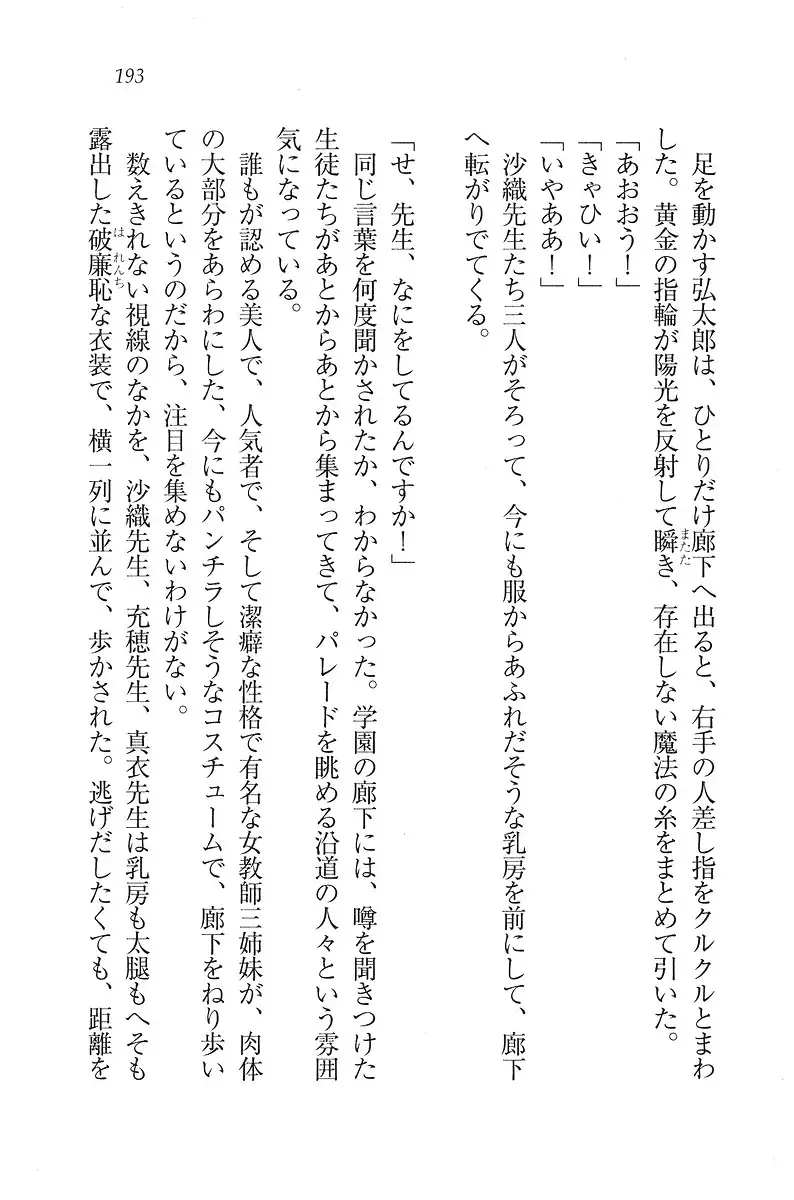 193
足を動かす弘太郎は、ひとりだけ廊下へ出ると、右手の人差し指をクルクルとまわ
した。黄金の指輪が陽光を反射して瞬き、存在しない魔法の糸をまとめて引いた。
またた
「あおおう！」
「きゃひい！」
「いやああ！」
沙織先生たち三人がそろって、今にも服からあふれだそうな乳房を前にして、廊下
へ転がりでてくる。
「せ、先生、なにをしてるんですか！」
同じ言葉を何度聞かされたか、わからなかった。学園の廊下には、噂を聞きつけた
生徒たちがあとからあとから集まってきて、パレードを眺める沿道の人々という雰囲
気になっている。
誰もが認める美人で、人気者で、そして潔癖な性格で有名な女教師三姉妹が、肉体
の大部分をあらわにした、今にもパンチラしそうなコスチュームで、廊下をねり歩い
ているというのだから、注目を集めないわけがない。
数えきれない視線のなかを、沙織先生、充穂先生、真衣先生は乳房も太腿もへそも
露出した破廉恥な衣装で、横一列に並んで、歩かされた。逃げだしたくても、距離を
はれんち